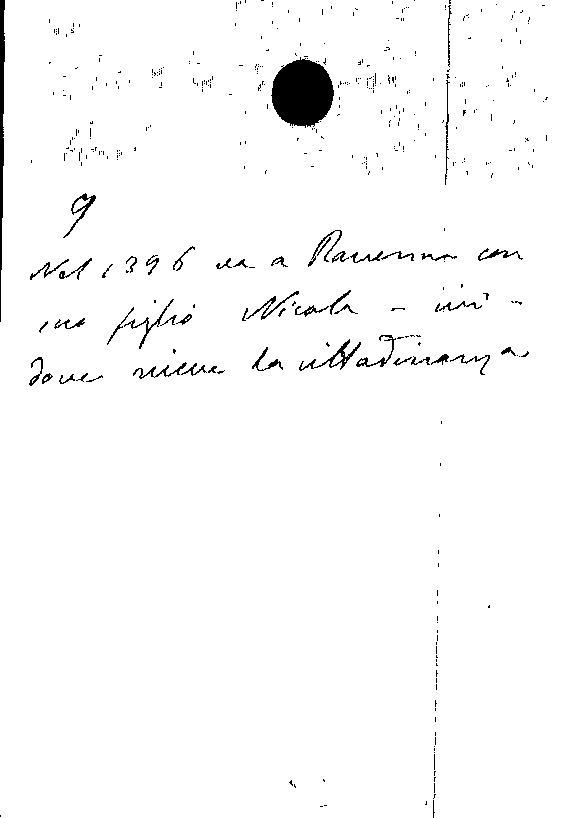 9
Nel 1396 va a Ravenna con
suo figlio Nicola - ivi -
dove riceve la cittadinanza